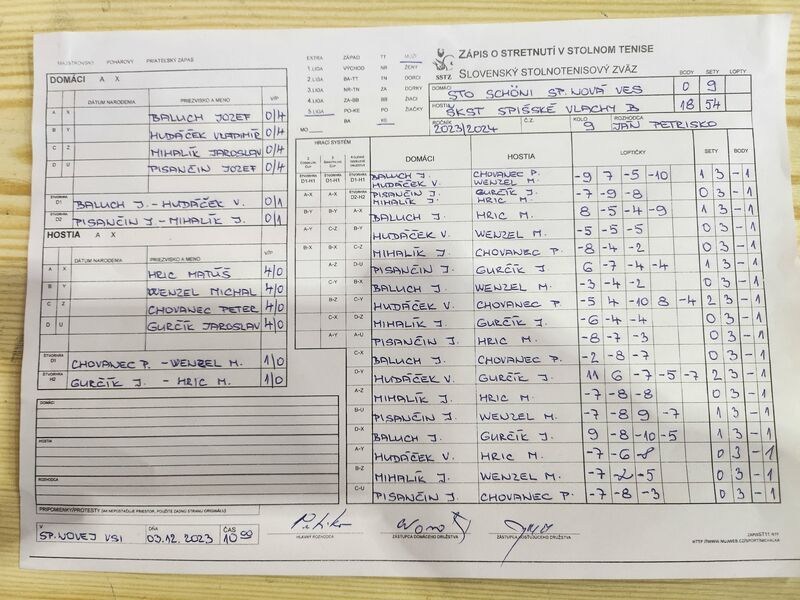 MAJSTROVSKÝ POHÁROVÝ PRIATEĽSKÝ ZÁPAS
EXTRA ZÁPAD TT MUŽI
1.LIGA VÝCHOD NR ŽENY
2.LIGA BA-TT TN DORCI
3.LIGA NR-TN ZA DORKY
4.LIGA ZA-BB BB ŽIACI
5.LIGA PO-KE PO ŽIAČKY
BA KE
MO
SSTZ
ZÁPIS O STRETNUTÍ V STOLNOM TENISE
SLOVENSKÝ STOLNOTENISOVÝ ZVÄZ
BODY SETY LOPTY
DOMÁCI STO SCHÖNI SP. NOVÁ VES 0 9
HOSTIA ŠKST SPIŠSKÉ VLACHY B 18 54
ROČNÍK 2023/2024 Č.Z. KOLO 9 ROZHODCA JÁN PETRISKO
DOMÁCI A X
DÁTUM NARODENIA PRIEZVISKO A MENO V/P
A X BALUCH JOZEF 0/4
B Y HUDÁČEK VLADIMÍR 0/4
C Z MIHALÍK JAROSLAV 0/4
D U PISANČIN JOZEF 0/4
ŠTVORHRA D1 BALUCH J. - HUDÁČEK V. 0/1
ŠTVORHRA D2 PISANČIN J - MIHALÍK J. 0/1
HOSTIA A X
DÁTUM NARODENIA PRIEZVISKO A MENO V/P
A X HRIC MATÚŠ 4/0
B Y WENZEL MICHAL 4/0
C Z CHOVANEC PETER 4/0
D U GURČÍK JAROSLAV 4/0
ŠTVORHRA D1 CHOVANEC P. - WENZEL M. 1/0
ŠTVORHRA H2 GURČÍK J. - HRIC M. 1/0
DOMÁCI
HOSTIA
ROZHODCA
HRACÍ SYSTÉM DOMÁCI HOSTIA LOPTIČKY SETY BODY
D1-H1 D1-H1 D1-H1 BALUCH J. HUDÁČEK V. CHOVANEC P. WENZEL M. -9 7 -5 -10 1 3 - 1
A-X A-X D2-H2 PISANČIN J. MIHALÍK J. GURČÍK J. HRIC M. -7 -9 -8 0 3 - 1
B-Y B-Y A-X BALUCH J. HRIC M. 8 -5 -4 -9 1 3 - 1
A-Y C-Z B-Y HUDÁČEK V. WENZEL M. -5 -5 -5 0 3 - 1
B-X B-X C-Z MIHALÍK J. CHOVANEC P. -8 -4 -2 0 3 - 1
A-Z D-U PISANČIN J. GURČÍK J. 6 -7 -4 -4 1 3 - 1
C-Y B-X BALUCH J. WENZEL M. -3 -4 -2 0 3 - 1
B-Z C-Y HUDÁČEK V. CHOVANEC P. -5 4 -10 8 -4 2 3 - 1
C-X D-Z MIHALÍK J. GURČÍK J. -6 -4 -4 0 3 - 1
A-Y A-U PISANČIN J. HRIC M. -8 -7 -3 0 3 - 1
C-X BALUCH J. CHOVANEC P. -2 -8 -7 0 3 - 1
D-Y HUDÁČEK V. GURČÍK J. 11 6 -7 -5 -7 2 3 - 1
A-Z MIHALÍK J. HRIC M. -7 -8 -8 0 3 - 1
B-U PISANČIN J. WENZEL M. -7 -8 9 -7 1 3 - 1
D-X BALUCH J. GURČÍK J. 9 -8 -10 -5 1 3 - 1
A-Y HUDÁČEK V. HRIC M. -7 -6 -8 0 3 - 1
B-Z MIHALÍK J. WENZEL M. -7 -2 -5 0 3 - 1
C-U PISANČIN J. CHOVANEC P. -7 -8 -3 0 3 - 1
PRIPOMIENKY/PROTESTY (AK NEPOSTAČUJE PRIESTOR, POUŽITE ZADNÚ STRANU ORIGINÁLU)
V SP. NOVEJ VSI DŇA 03.12.2023 ČAS 10 00
HLAVNÝ ROZHODCA ZÁSTUPCA DOMÁCEHO DRUŽSTVA ZÁSTUPCA HOSŤUJÚCEHO DRUŽSTVA
HTTP://WWW.MUJWEB.CZ/SPORT/MICHALKA